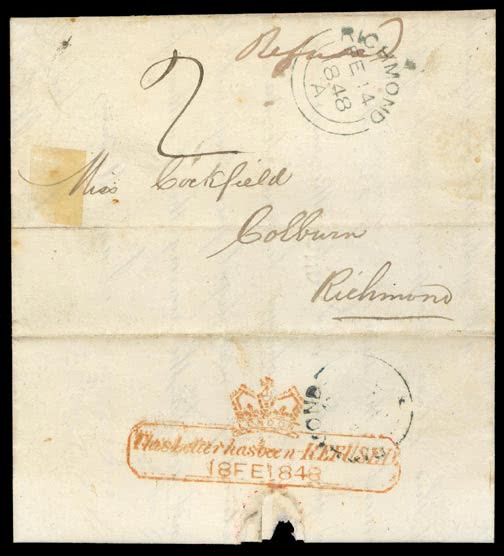 Refused
RICHMOND
FE 14
1848
A
2
Miss Cockfield
Colburn
Richmond
MOND
LONDON
This Letter has been REFUSED
18FE1848